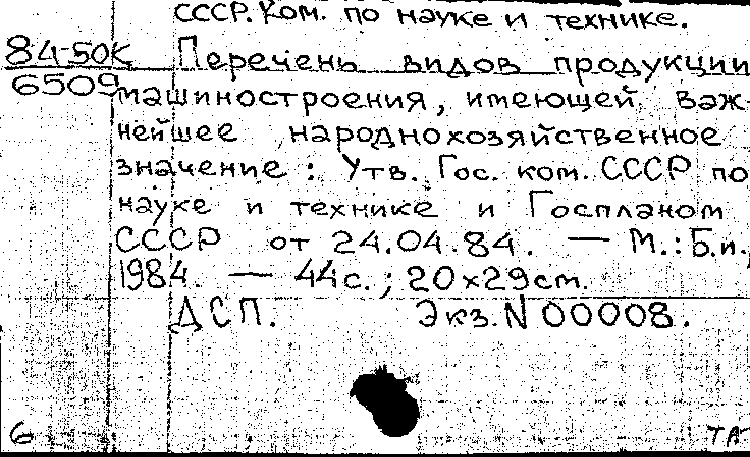 СССР. Ком. по науке и технике.
84-50К
6509
Перечень видов продукции
машиностроения, имеющей важ-
нейшее народнохозяйственное
значение: Утв. Гос. ком. СССР по
науке и технике и Госпланом
СССР от 24.04.84. — М.: Б.и.,
1984. — 44с.; 20×29см.
ДСП. Экз. N 00008.
6 ТА